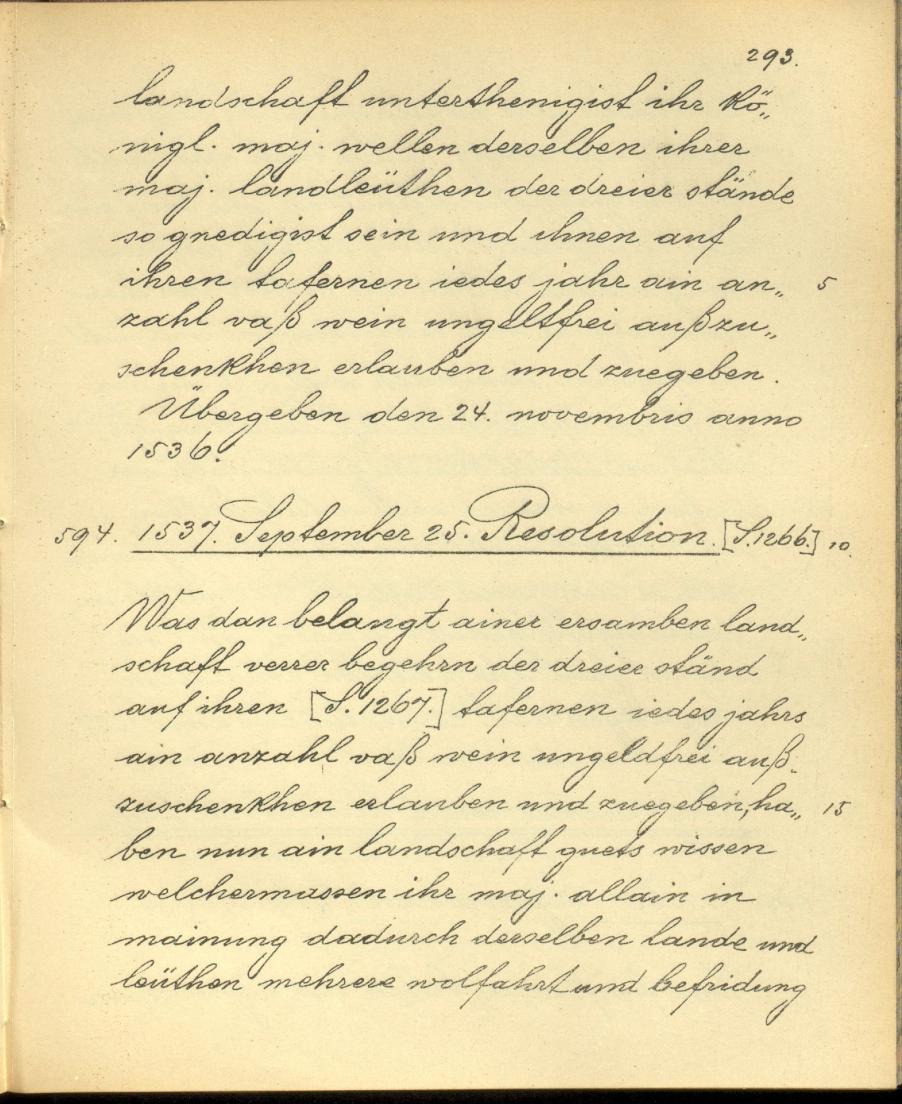 293.
landschaft unterthenigist ihr kö„
nigl. maj. wellen derselben ihrer
maj. landleüthen der dreier stände
so gnedigist sein und ihnen auf
ihren tafernen iedes jahr ain an„ 5
zahl vaß wein ungeltfrei außzu„
schenkhen erlauben und zuegeben.
Übergeben den 24. novembris anno
1536.
594. 1537. September 25. Resolution. [S.1266.] 10.
Was dan belangt ainer ersamben land„
schaft verrer begehrn der dreier ständ
auf ihren [S. 1267.] tafernen iedes jahrs
ain anzahl vaß wein ungeldfrei auß„
zuschenkhen erlauben und zuegeben, ha„ 15
ben nun ain landschaft guets wissen
welchermassen ihr maj. allain in
mainung dadurch derselben lande und
leüthen mehrere wolfahrt und befridung